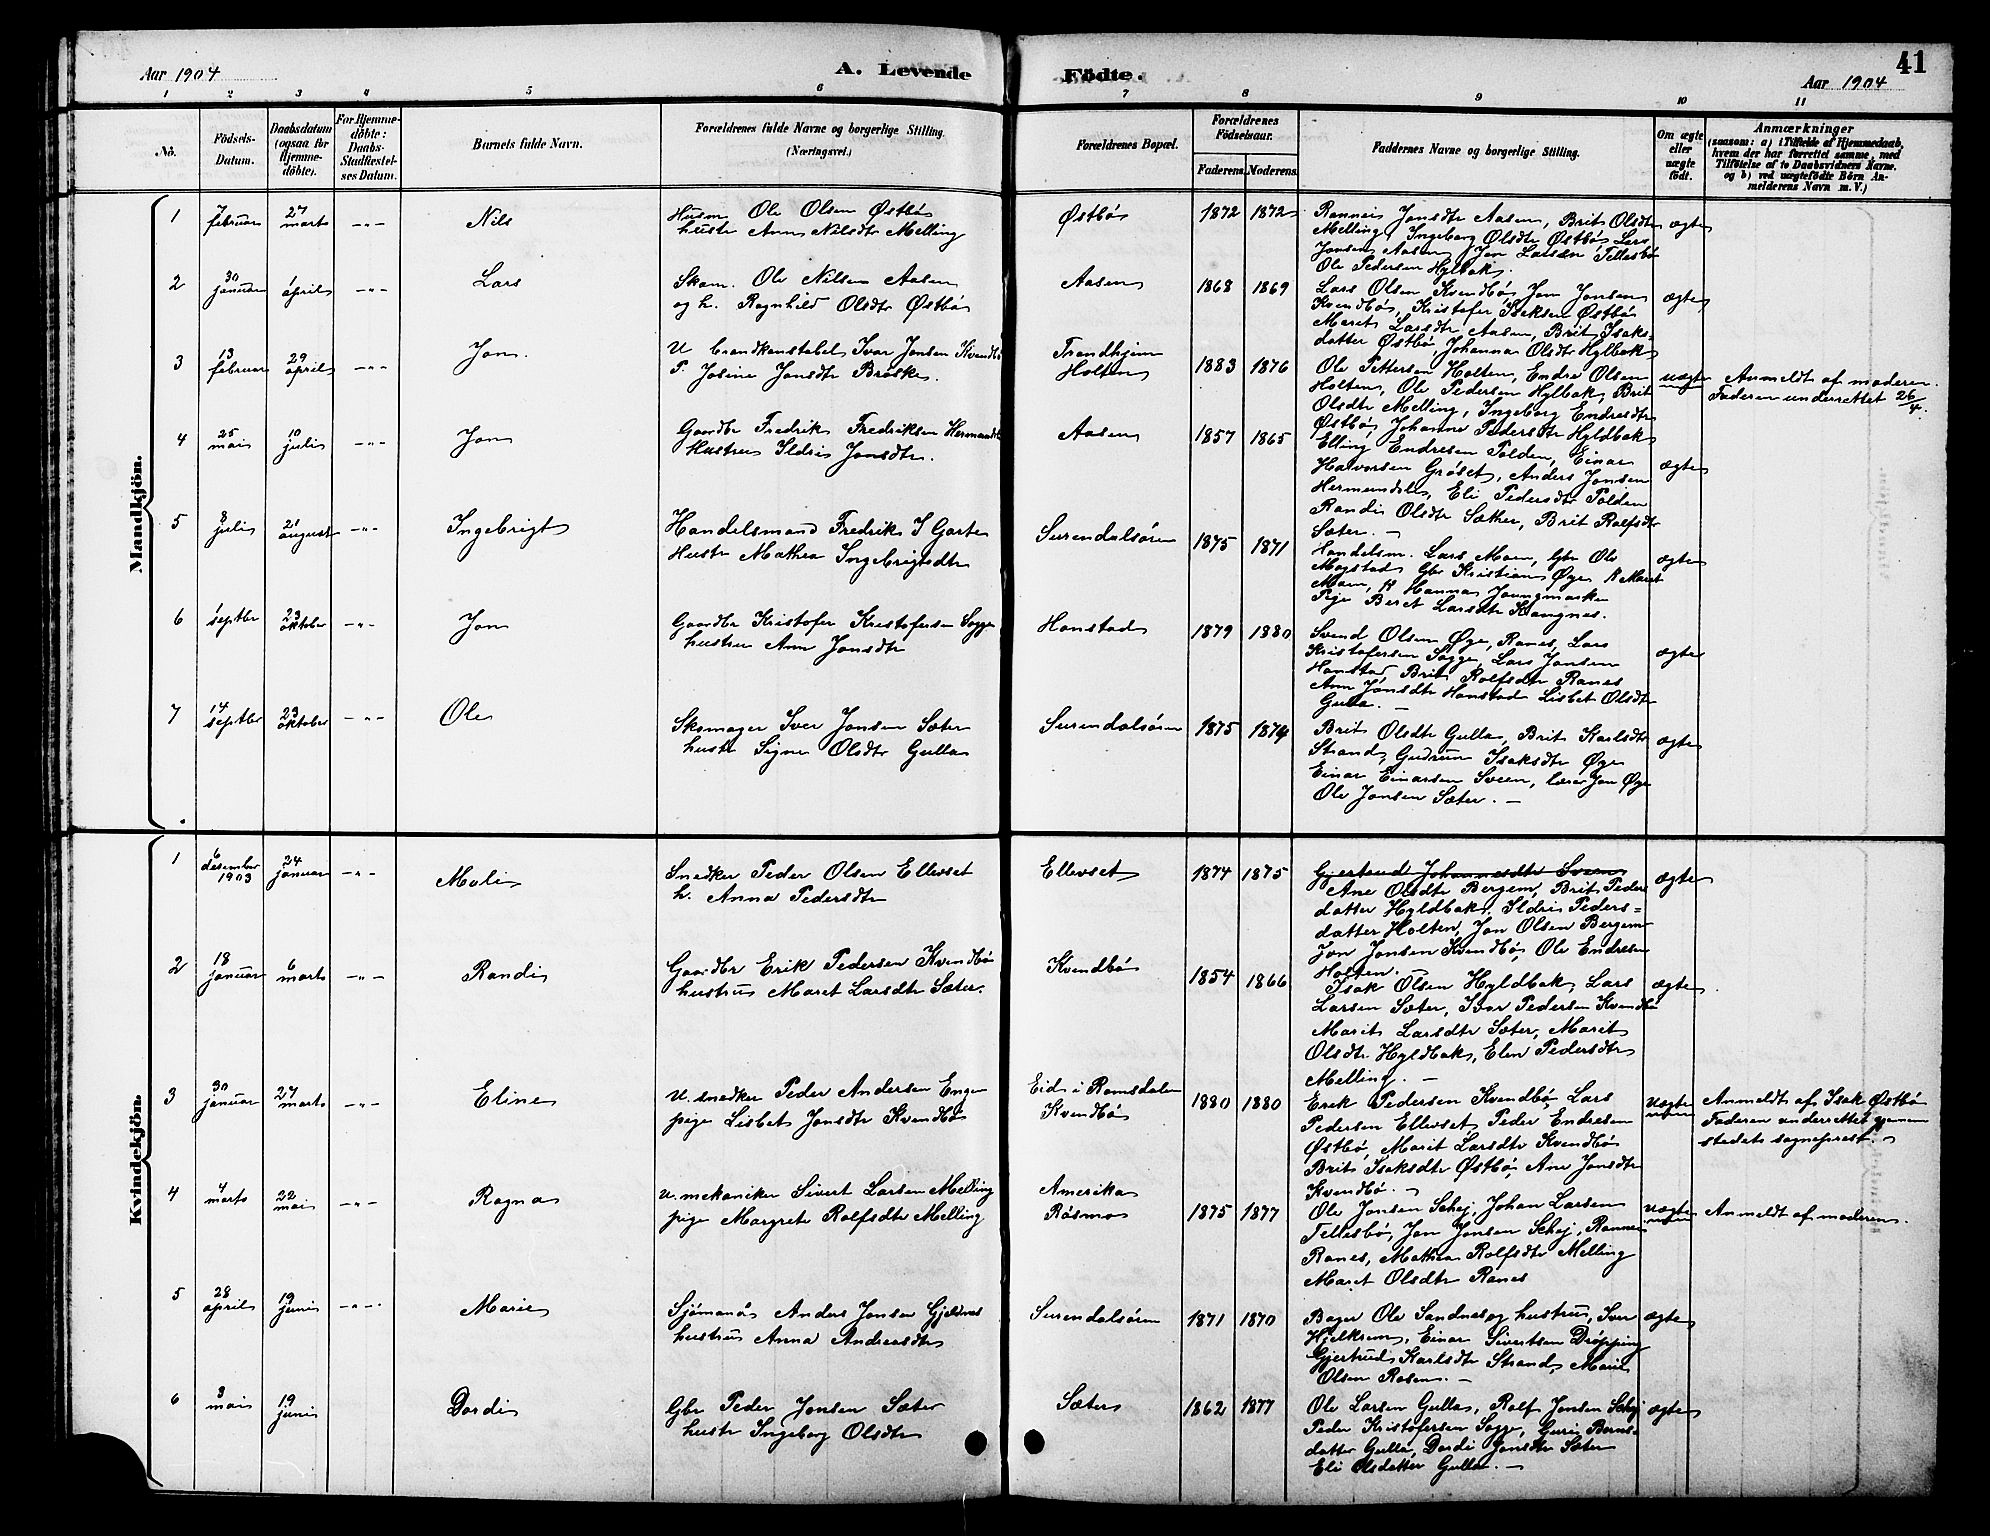 Aar 1904
A. Levende Födte.
Aar 1904
41
1 2 3 4 5 6 7 8 9 10 11
No.
Födsels-Datum.
Daabsdatum (ogsaa for Hjemme-döbte).
For Hjemme-döbte: Daabs-Stadfæstel-ses Datum.
Barnets fulde Navn.
Forældrenes fulde Navne og borgerlige Stilling.
(Næringsvei.)
Forældrenes Bopæl.
Forældrenes Födselsaar.
Faderens. Moderens.
Faddernes Navne og borgerlige Stilling.
Om ægte eller uægte födt.
Anmærkninger
(saasom: a) i Tilfælde af Hjemmedaab, hvem der har forrettet samme, med Tilföielse af to Daabsvidners Navne. og b) ved uægtefödte Börn An-melderens Navn m. V.)
Mandkjön.
1 7 februar 27 marts -"- Nils
Husm. Ole Olsen Østbø
hustr Ann Nilsdtr Melling
Østbø 1872 1872
Rannei Jonsdtr Aasen, Brit Olsdtr
Melling, Ingeborg Olsdtr Østbø, Lars
Jonsen Aasen, Jon Larsen Tellesbø
Ole Pedersen Hylbak.
ægte
2 30 januar april -"- Lars
Skom. Ole Nilsen Aasen
og h. Ragnhild Olsdtr Østbø
Aasen 1868 1869
Lars Olsen Kvendbø, Jon Jonsen
Kvendbø, Kristofer Isaksen Østbø
Maret Larsdtr Aasen, Brit Isaks-
datter Østbø, Johanna Olsdtr Hylbak
ægte
3 13 februar 29 april -"- Jon.
U brandkonstabel Ivar Jonsen Kvendbø
P. Josine Jonsdtr Brøske.
Trondhjem
Holten
1883 1876
Ole Pettersen Holten, Endre Olsen
Holten, Ole Pedersen Hylbak, Brit
Olsdtr Melling, Ingeborg Endresdtr
Østbø, Johanne Pedersdtr Hyldbak
uægte
Anmeldt af moderen.
Faderen underrettet 26/4.
4 25 mai 10 juli -"- Jon
Gaardbr Fredrik Fredriksen
Hustru Ildri Jonsdtr.
Aasen 1857 1865
Elling Endresen Polden, Einar
Halvorsen Grøset, Anders Jonsen
Hermundsli, Eli Pedersdtr Polden
Randi Olsdtr Sæther, Brit Rolfsdtr
Sæter. —
ægte
5 8 juli 21 august -"- Ingebrigt
Handelsmand Fredrik I Garte
Hustr Mathea Ingebrigtsdtr
Surendalsøren 1875 1871
Handelsm. Lars Moen, Gbr Ole
Mogstad, Gbr Kristian Øye, Maret
Moen, Hanna Joungmarke
Pige Beret Larsdtr Kangnes.
ægte
6 septbr 23 oktober -"- Jon
Gaardbr Kristofer Kristofersen Sogge
hustru Ann Jonsdtr
Honstad 1879 1880
Svend Olsen Øye, Ranes, Lars
Kristofersen Sogge, Lars Jonsen
Honstad, Brit Rolfsdtr Ranes
Ann Jonsdtr Honstad, Lisbet Olsdtr
Gulla. —
ægte
7 14 septbr 23 oktober -"- Ole
Skomager Iver Jonsen Sæter
hustr Signe Olsdtr Gulla
Surendalsøren 1875 1874
Brit Olsdtr Gulla, Brit Karlsdtr
Strand, Gudrun Isaksdtr Øye
Einar Einarsen Sveen, lærer Jon Øye
Ole Jonsen Sæter. —
ægte
Kvindekjön.
1 6 desember 1903 24 januar -"- Mali
Snedker Peder Olsen Ellevset
h. Anna Pedersdtr
Ellevset 1874 1875
Gjertrud Johannesdtr Sveen
Ane Olsdtr Bergem, Brit Peders
datter Hyldbak, Ildri Peders=
datter Holten, Jon Olsen Bergem
Jon Jonsen Kvendbø, Ole Endresen
Holten.
ægte
2 18 januar 6 marts -"- Randi
Gaardbr Erik Pedersen Kvendbø
hustru Maret Larsdtr Sæter.
Kvendbø 1854 1866
Isak Olsen Hyldbak, Lars
Larsen Sæter, Ivar Pedersen Kvendbø
Marit Larsdtr Sæter, Marit
Olsdtr Hyldbak, Elen Pedersdtr
Melling. —
ægte
3 30 januar 27 marts -"- Eline
U. snedker Peder Andersen Enge
pige Lisbet Jonsdtr Kvendbø
Eid i Romsdalen
Kvendbø
1880 1880
Erik Pedersen Kvendbø, Lars
Pedersen Ellevset, Peder Endresen
Østbø, Marit Larsdtr Kvendbø
Brit Isaksdtr Østbø, Ane Jonsdtr
Kvendbø. —
uægte
Anmeldt af Isak Østbø
Faderen underrettet gjennem
stedets sogneprest.
4 4 marts 22 mai -"- Ragna
U. mekaniker Sivert Larsen Melling
pige Margrete Rolfsdtr Melling
Amerika
Røsmo
1875 1877
Ole Jonsen Schej, Johan Larsen
Tellesbø, Jon Jonsen Schej, Rannei
Ranes, Mathea Rolfsdtr Melling
Maret Olsdtr Ranes
uægte
Anmeldt af moderen.
5 28 april 19 juni -"- Marie
Sjømand Anders Jonsen Gjeldnes
hustru Anna Andersdtr
Surendalsøren 1871 1870
Bager Ole Sandnes og hustru, Iver
Hjelkrem, Einar Sivertsen Drøpping
Gjertrud Karlsdtr Strand, Marie
Olsen Rosen. —
ægte
6 3 mai 19 juni Dordi
Gbr Peder Jonsen Sæter
hustr Ingeborg Olsdtr
Sæter 1862 1877
Ole Larsen Gulla, Rolf Jonsen Schej
Peder Kristofersen Sogge, Guri Berns-
datter Gulla, Dordi Jonsdtr Sæter
Eli Olsdatter Gulla. —
ægte